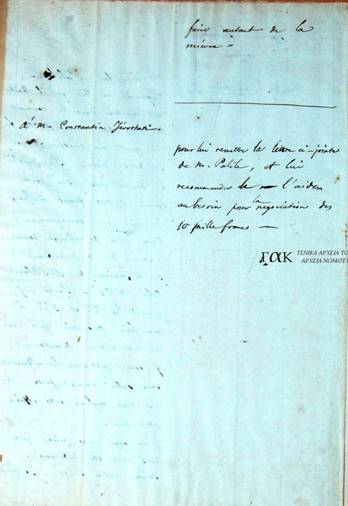 faire autant de la
mienne –
à M. Constantin Jérostati
pour lui remettre la lettre ci-jointe
de M. Palik, et lui
recommander de – l'aider
au besoin pour la négociation des
10 mille francs —
ΓΑΚ ΓΕΝΙΚΑ ΑΡΧΕΙΑ ΤΟ
ΑΡΧΕΙΑ ΝΟΜΟΥ